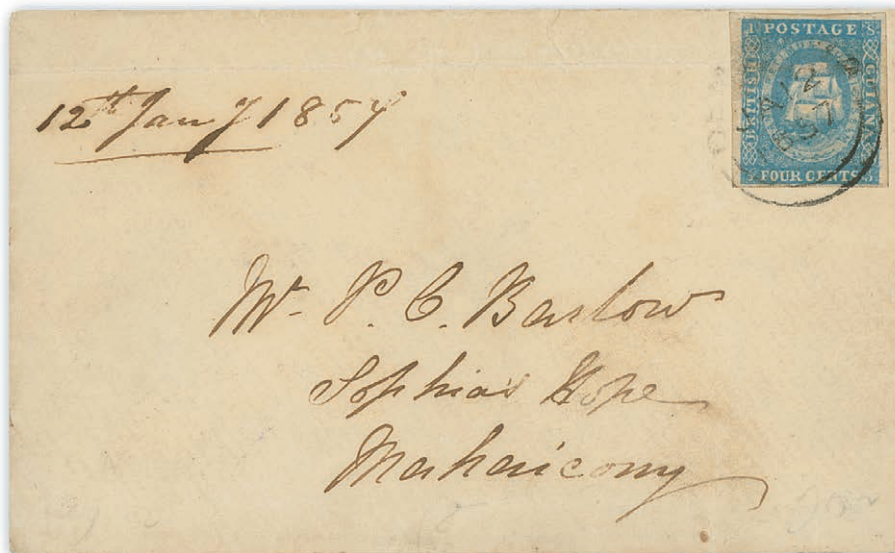 12th Jany 1857
POSTAGE
BRITISH
GUIANA
FOUR CENTS
Mr. P. C. Barlow
Sophia's Hope
Mahaicony